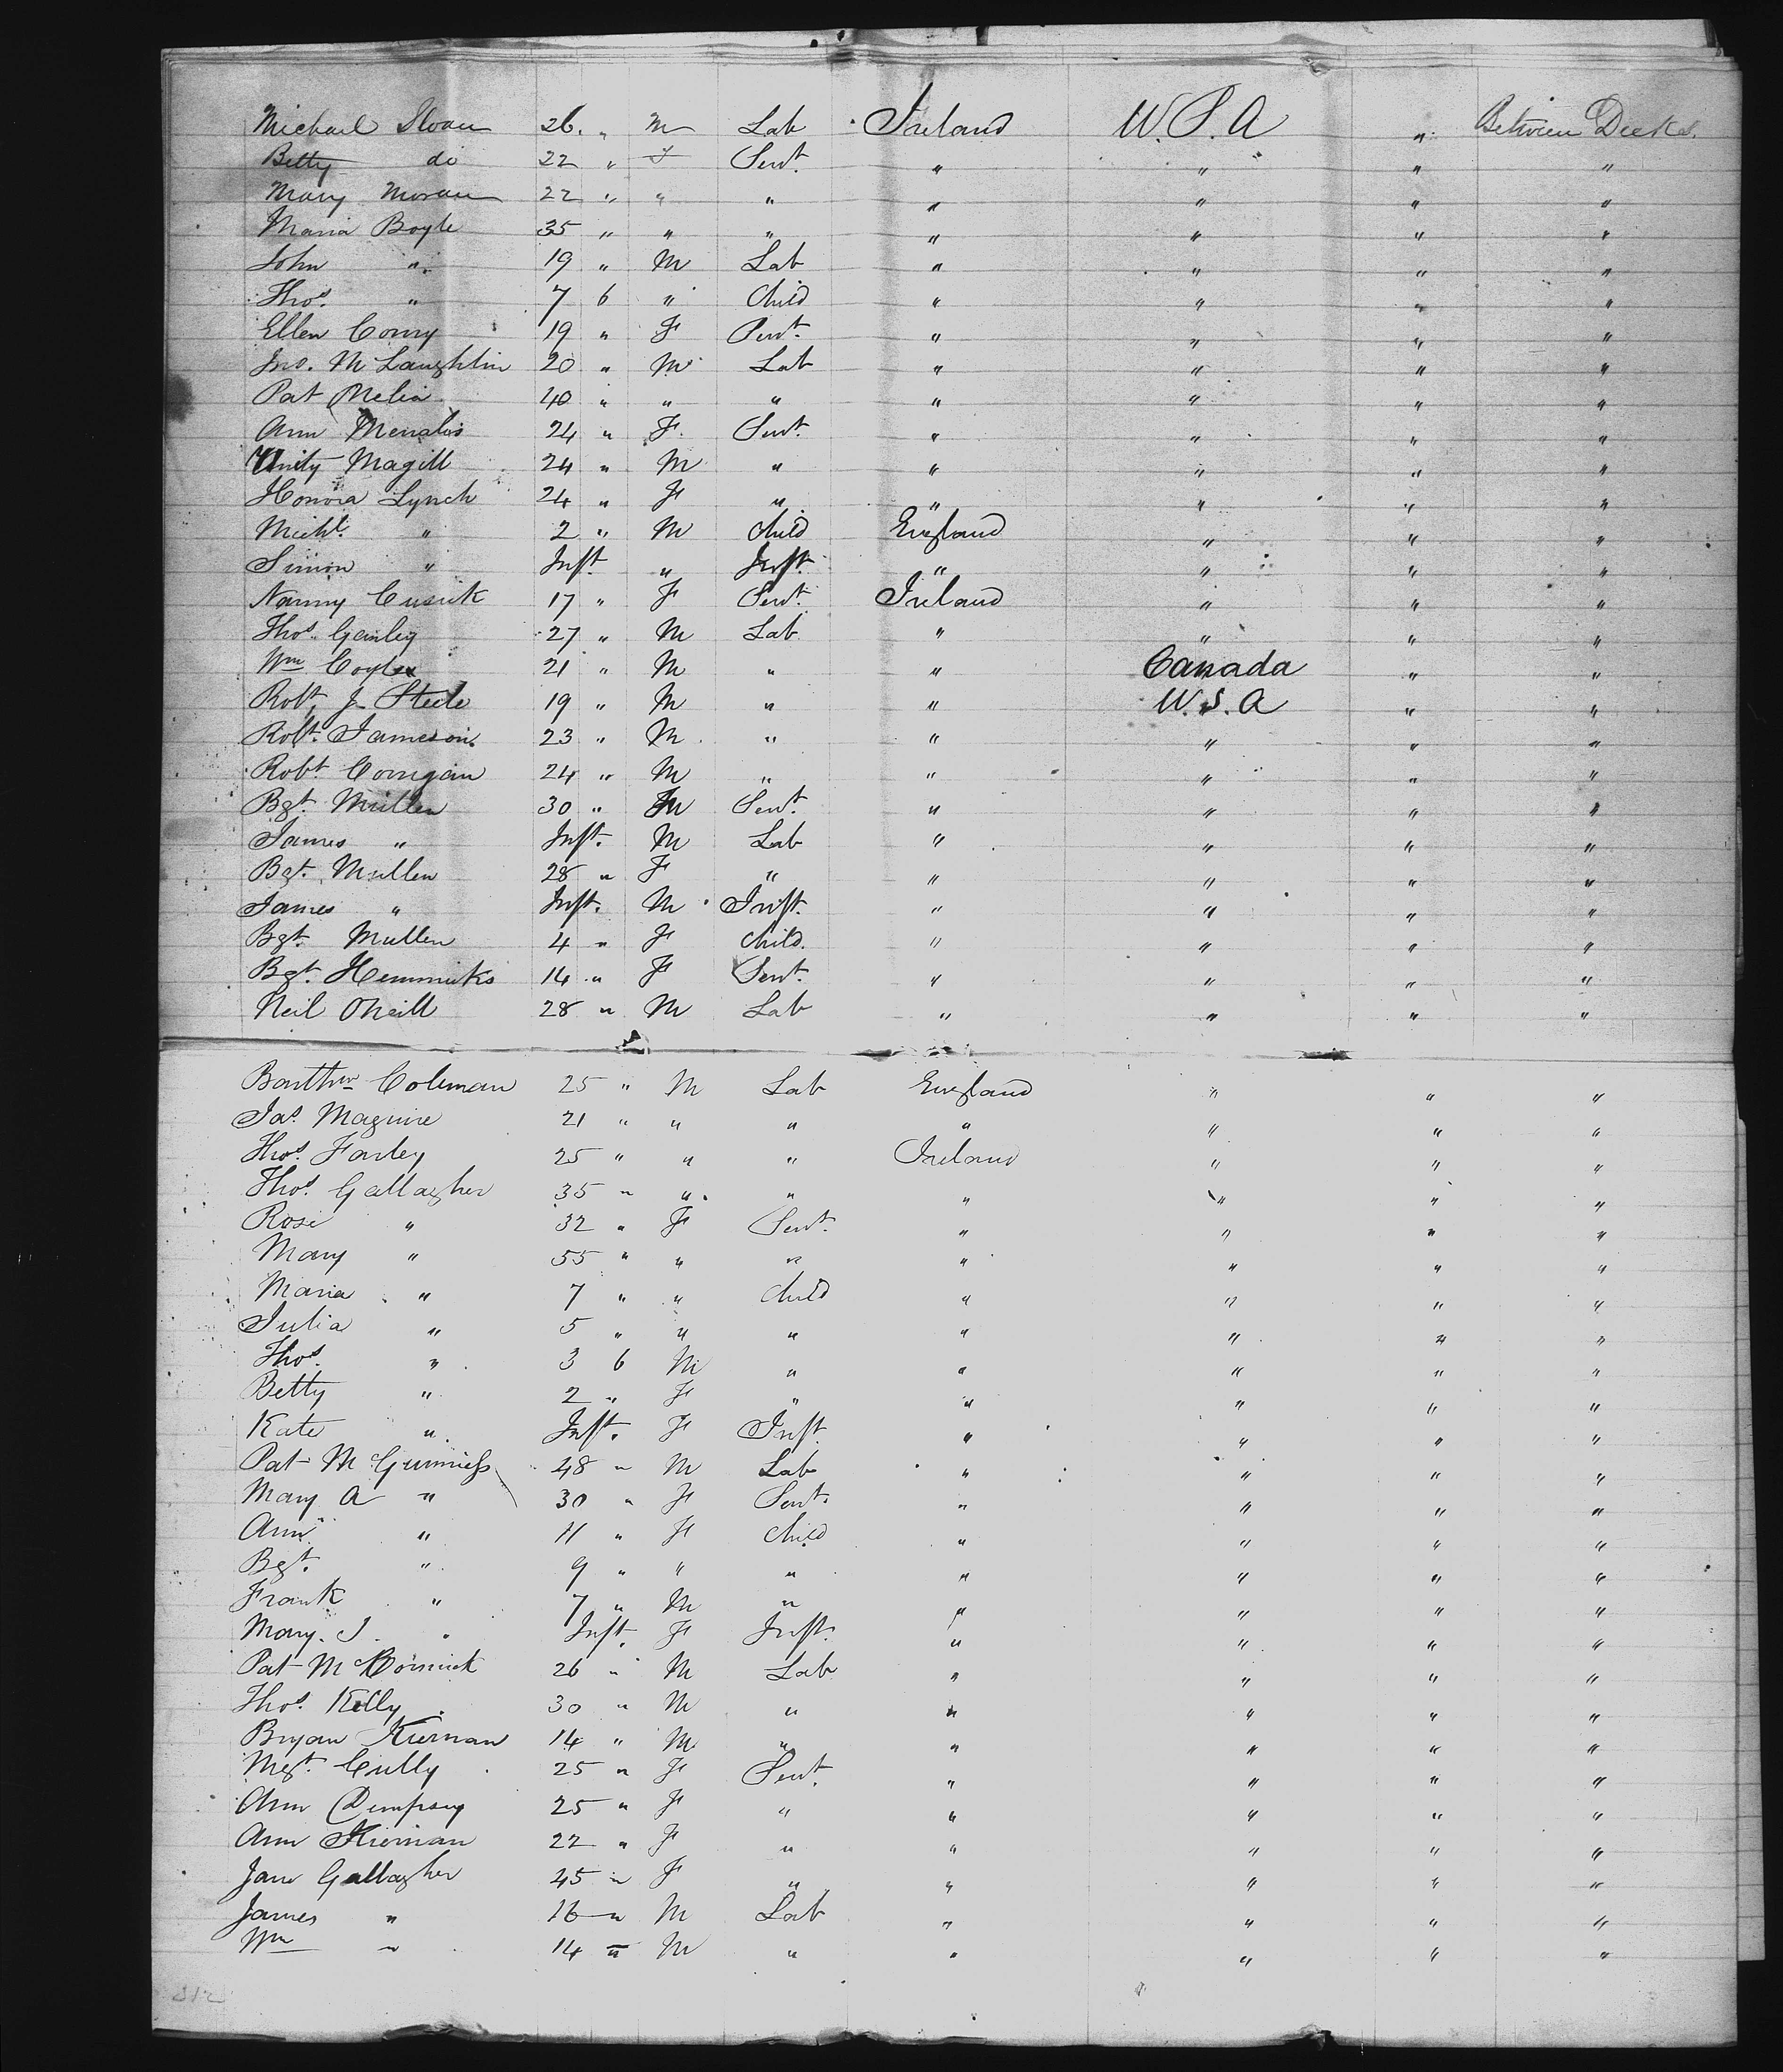 Michael Sloan 26 " M Lab Ireland U.S.A " Between Decks.
Betty do 22 " F Servt. " " " "
Mary Moran 22 " " " " " " "
Maria Boyle 35 " " " " " " "
John " 19 " M Lab " " " "
Thos. " 7 6 " Child " " " "
Ellen Conry 19 " F Servt. " " " "
Jno. McLaughlin 20 " M Lab " " " "
Pat Melia 40 " " " " " " "
Ann 24 " F. Servt. " " " "
Unity Magill 24 " M " " " " "
Honora Lynch 24 " F " " " " "
Michl. " 2 " M Child England " " "
Simon " Inft. " Inft. " " " "
Nanny Cusick 17 " F Servt. Ireland " " "
Thos. Ganley 27 " M Lab " " " "
Wm Coyle 21 " M " " Canada " "
Robt. J Steele 19 " M " " U.S.A " "
Robt. Jameson. 23 " M " " " " "
Robt Corrigan 24 " M " " " " "
Bgt. Mullen 30 " F Servt. " " " "
James " Inft. M Lab " " " "
Bgt. Mullen 28 " F " " " " "
James " Inft. M Inft. " " " "
Bgt. Mullen 4 " F Child. " " " "
Bgt. 14 " F Servt. " " " "
Neil ONeill 28 " M Lab " " " "
Barthw Coleman 25 " M Lab England " " "
Jas. Maguire 21 " " " " " " "
Thos. Farley 25 " " " Ireland " " "
Thos. Gallagher 35 " " " " " " "
Rose " 32 " F Servt. " " " "
Mary " 55 " " " " " " "
Maria " 7 " " Child " " " "
Julia " 5 " " " " " " "
Thos. " 3 6 M " " " " "
Betty " 2 " F " " " " "
Kate " Inft. F Inft. " " " "
Pat McGuinness 48 " M Lab " " " "
Mary A " 30 " F Servt. " " " "
Ann " 11 " F Child " " " "
Bgt. " 9 " " " " " " "
Frank " 7 " M " " " " "
Mary. J. " Inft. F Inft. " " " "
Pat McCormick 26 " M Lab " " " "
Thos. Kelly 30 " M " " " " "
Bryan Kiernan 14 " M " " " " "
Mgt. Cully 25 " F Servt. " " " "
Ann Dempsey 25 " F " " " " "
Ann Kiernan 22 " F " " " " "
Jane Gallagher 45 " F " " " " "
James " 16 " M Lab " " " "
Wm " 14 " M " " " " "